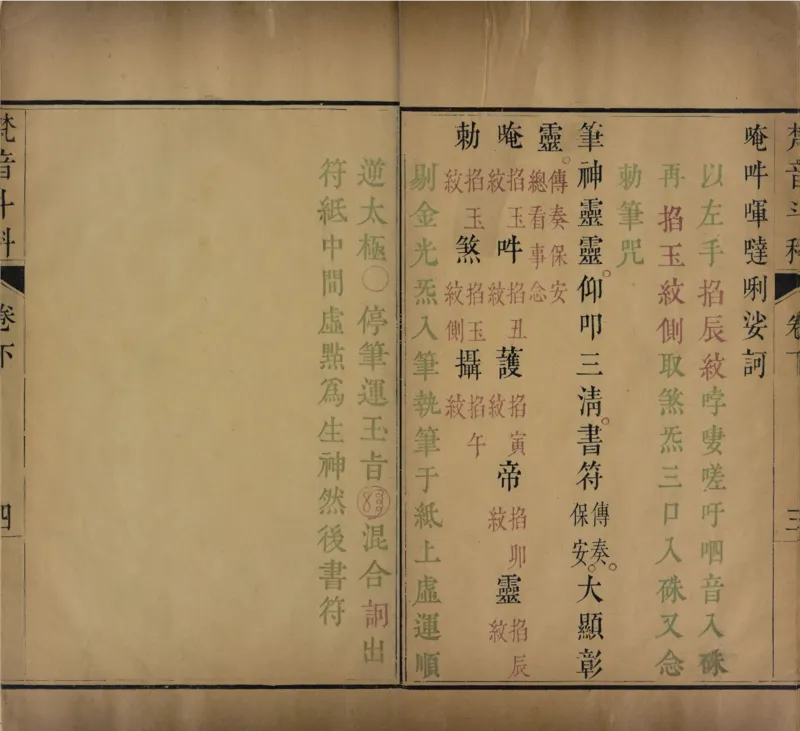 梵音斗科 卷下 三
唵吽喗噠唎娑訶
以左手掐辰紋哱嘍嗟吁呬音入硃
再掐玉紋側取煞炁三口入硃又念
勅筆咒
筆神靈靈。仰叩三淸。書符傳奏。保安。大顯彰
靈。傳奏保安總看事念
唵掐玉紋吽掐丑紋護掐寅紋帝掐卯紋靈掐辰紋
勅掐玉紋煞掐玉紋側攝掐午紋
剔金光炁入筆執筆于紙上虛運順
逆太極〇停筆運玉㫖混合詗出
符紙中間虛點爲生神然後書符
梵音斗科 卷下 四